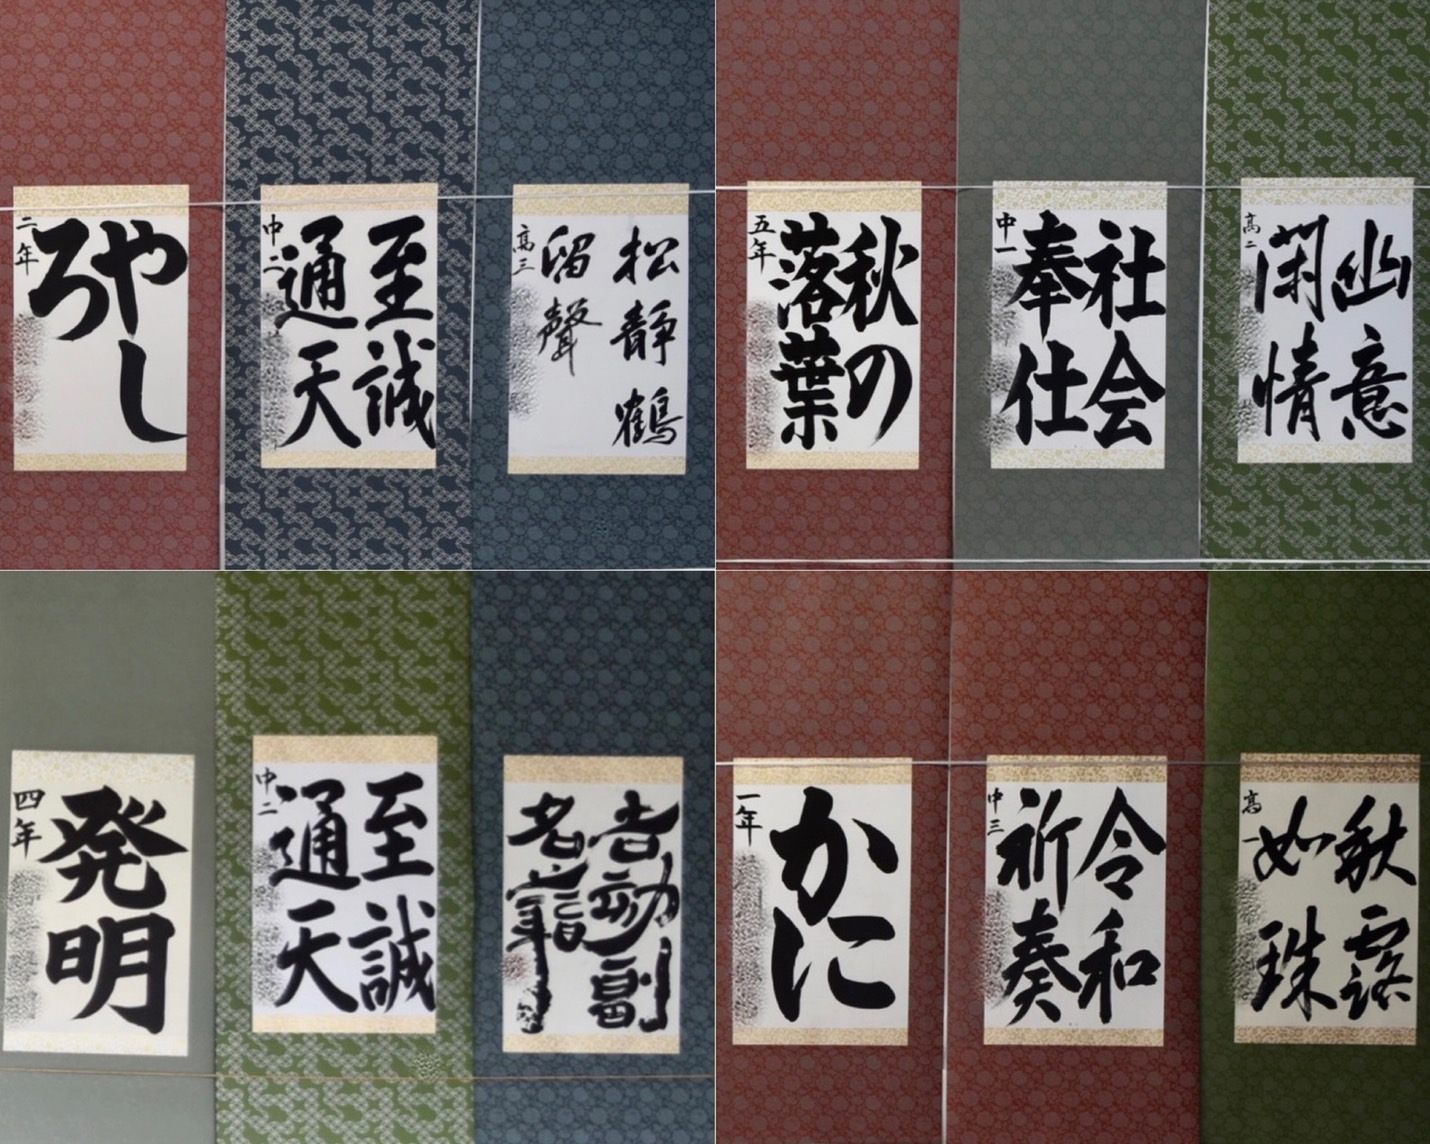 やし
ろ
二年
至誠
通天
中二
松静鶴
留聲
高三
秋の
落葉
五年
社会
奉仕
中一
幽意
閑情
高二
発明
四年
至誠
通天
中二
かに
一年
令和
祈奏
中三
秋露
如珠
高一